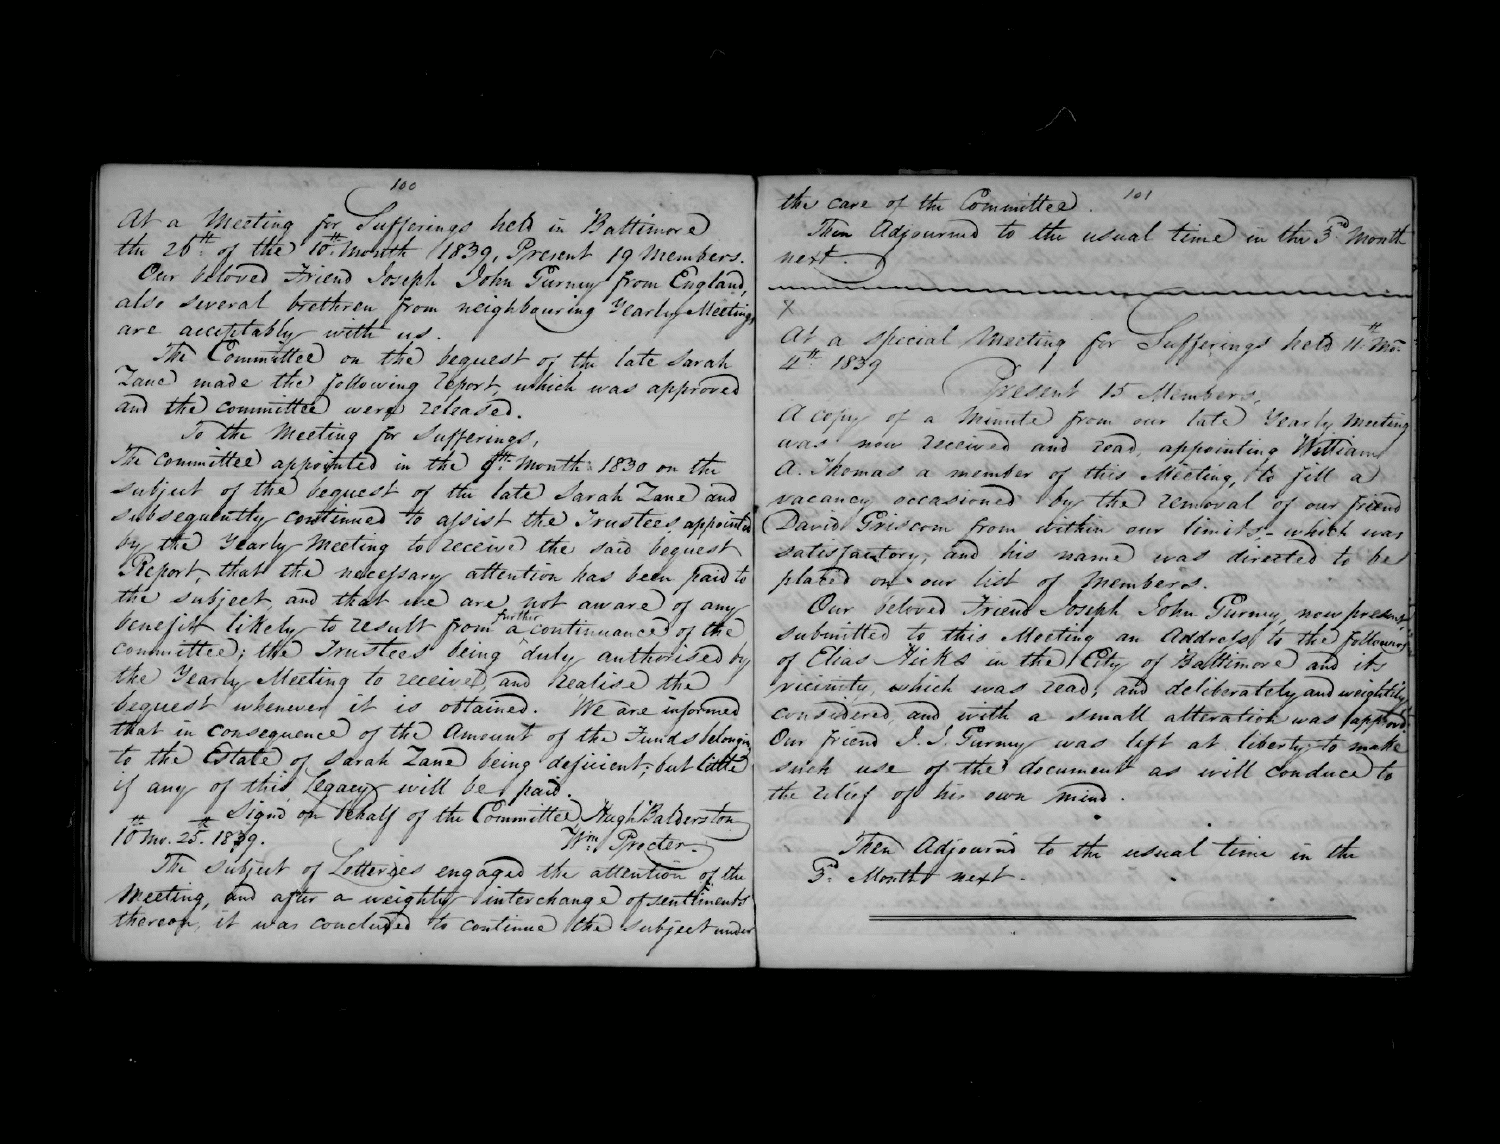 100
At a Meeting for Sufferings held in Baltimore
the 26th of the 10th month 1839, Present 19 Members.
Our beloved Friend Joseph John Gurney from England,
also several brethren from neighbouring Yearly Meetings,
are acceptably with us.
The Committee on the bequest of the late Sarah
Zane made the following report, which was approved
and the committee were released.
To the Meeting for Sufferings,
The committee appointed in the month 1830 on the
subject of the bequest of the late Sarah Zane and
subsequently continued to assist the Trustees appointed
by the Yearly Meeting to receive the said bequest
Report, that the necessary attention has been paid to
the subject, and that we are not aware of any
benefit likely to result from a further continuance of the
committee; the Trustees being duly authorised by
the Yearly Meeting to receive, and realise the
bequest whenever it is obtained. We are informed
that in consequence of the Amount of the Funds belonging
to the Estate of Sarah Zane being deficient; but little
if any of this Legacy will be paid.
Sign'd on behalf of the Committee, Hugh Balderston
10th Mo. 25th 1839. Wm. Procter.
The subject of Lotteries engaged the attention of the
Meeting, and after a weighty interchange of sentiments
thereon, it was concluded to continue the subject under
101
the care of the Committee.
Then Adjourned to the usual time in the 3rd Month
next.
X
At a special Meeting for Sufferings held 11th Mo.
4th 1839
Present 15 Members.
A copy of a Minute from our late Yearly Meeting
was now received and read, appointing William
A. Thomas a member of this Meeting, to fill a
vacancy occasioned by the removal of our friend
David Griscom from within our limits,- which was
satisfactory, and his name was directed to be
placed on our list of members.
Our beloved Friend Joseph John Gurney, now present
submitted to this Meeting an Address to the followers
of Elias Hicks in the City of Baltimore and its
vicinity, which was read, and deliberately and weightily
considered, and with a small alteration was approved.
Our friend J. J. Gurney was left at liberty to make
such use of the document as will conduce to
the relief of his own mind.
Then Adjourn'd to the usual time in the
3d. Month next.